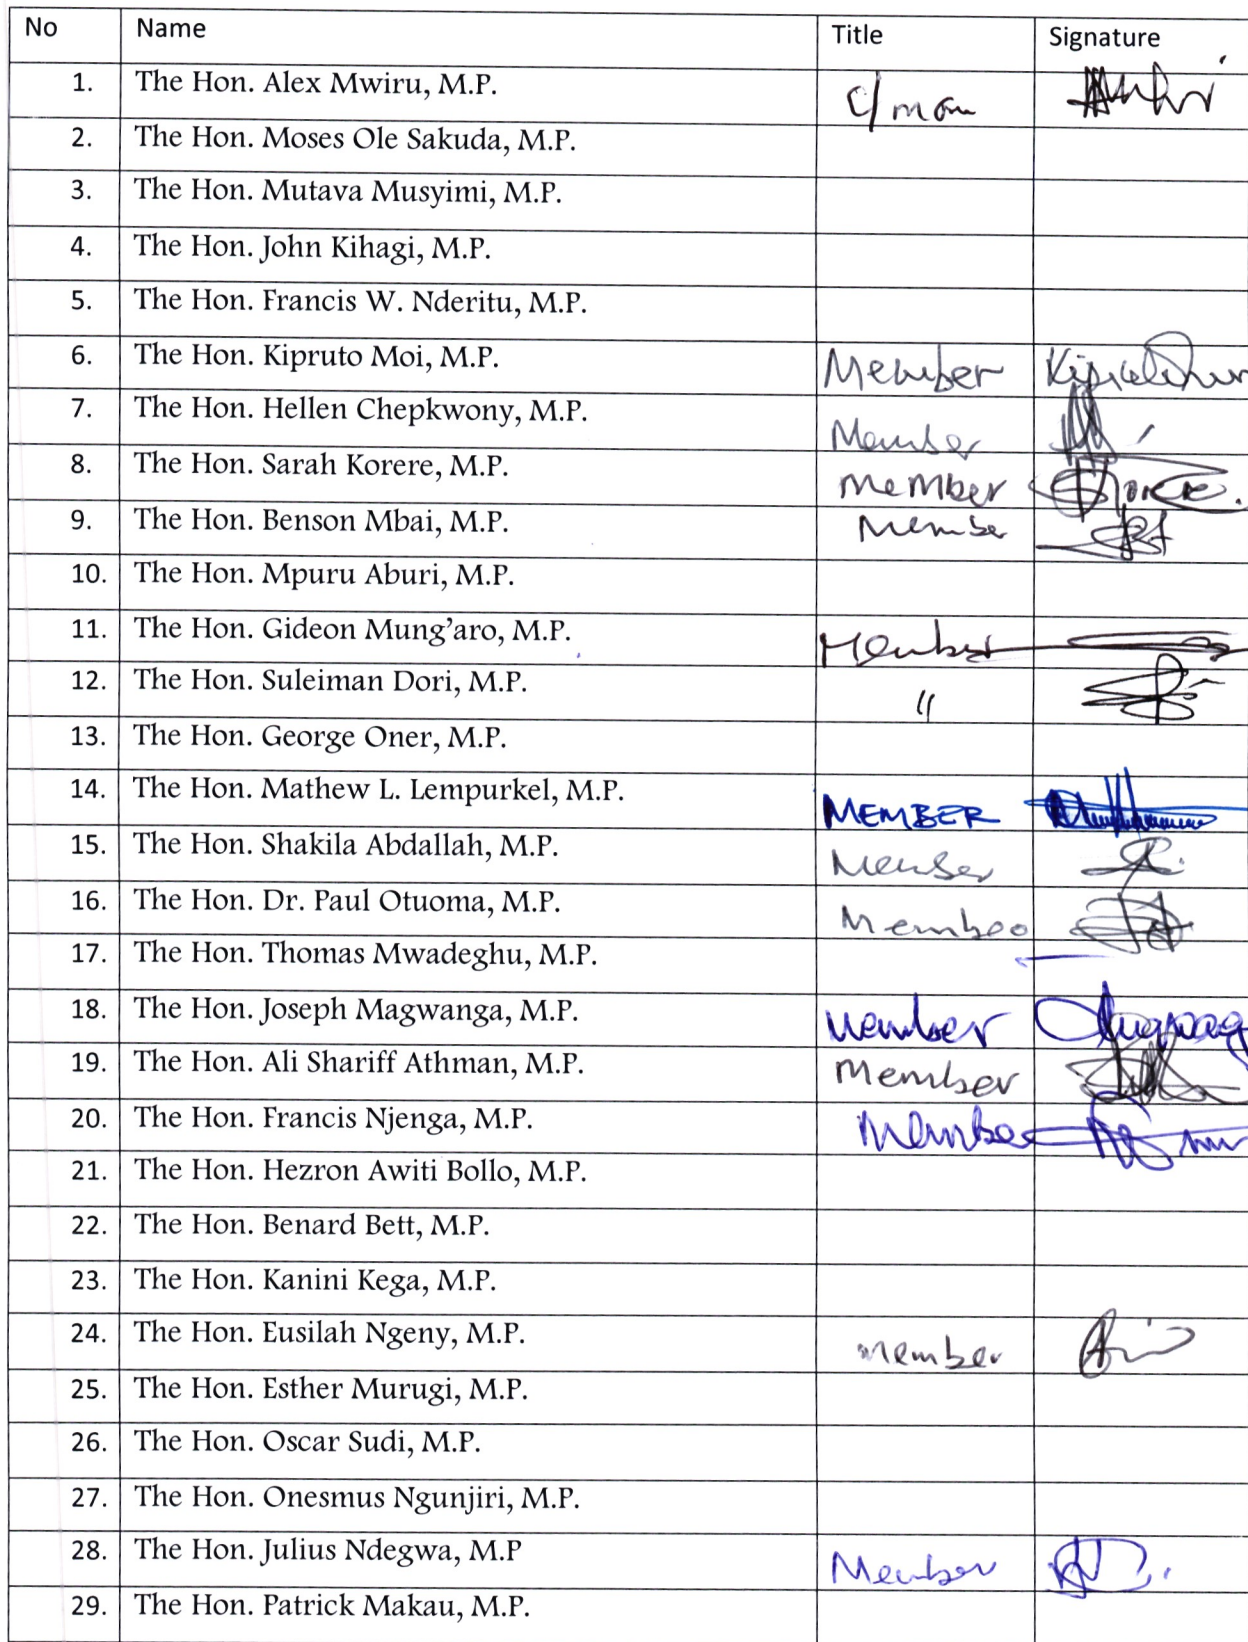 No Name Title Signature
1. The Hon. Alex Mwiru, M.P. C/man
2. The Hon. Moses Ole Sakuda, M.P.
3. The Hon. Mutava Musyimi, M.P.
4. The Hon. John Kihagi, M.P.
5. The Hon. Francis W. Nderitu, M.P.
6. The Hon. Kipruto Moi, M.P. Member
7. The Hon. Hellen Chepkwony, M.P. Member
8. The Hon. Sarah Korere, M.P. Member
9. The Hon. Benson Mbai, M.P. Member
10. The Hon. Mpuru Aburi, M.P.
11. The Hon. Gideon Mung'aro, M.P. Member
12. The Hon. Suleiman Dori, M.P. "
13. The Hon. George Oner, M.P.
14. The Hon. Mathew L. Lempurkel, M.P. MEMBER
15. The Hon. Shakila Abdallah, M.P. Member
16. The Hon. Dr. Paul Otuoma, M.P. Member
17. The Hon. Thomas Mwadeghu, M.P.
18. The Hon. Joseph Magwanga, M.P. Member
19. The Hon. Ali Shariff Athman, M.P. Member
20. The Hon. Francis Njenga, M.P. Member
21. The Hon. Hezron Awiti Bollo, M.P.
22. The Hon. Benard Bett, M.P.
23. The Hon. Kanini Kega, M.P.
24. The Hon. Eusilah Ngeny, M.P. Member
25. The Hon. Esther Murugi, M.P.
26. The Hon. Oscar Sudi, M.P.
27. The Hon. Onesmus Ngunjiri, M.P.
28. The Hon. Julius Ndegwa, M.P Member
29. The Hon. Patrick Makau, M.P.